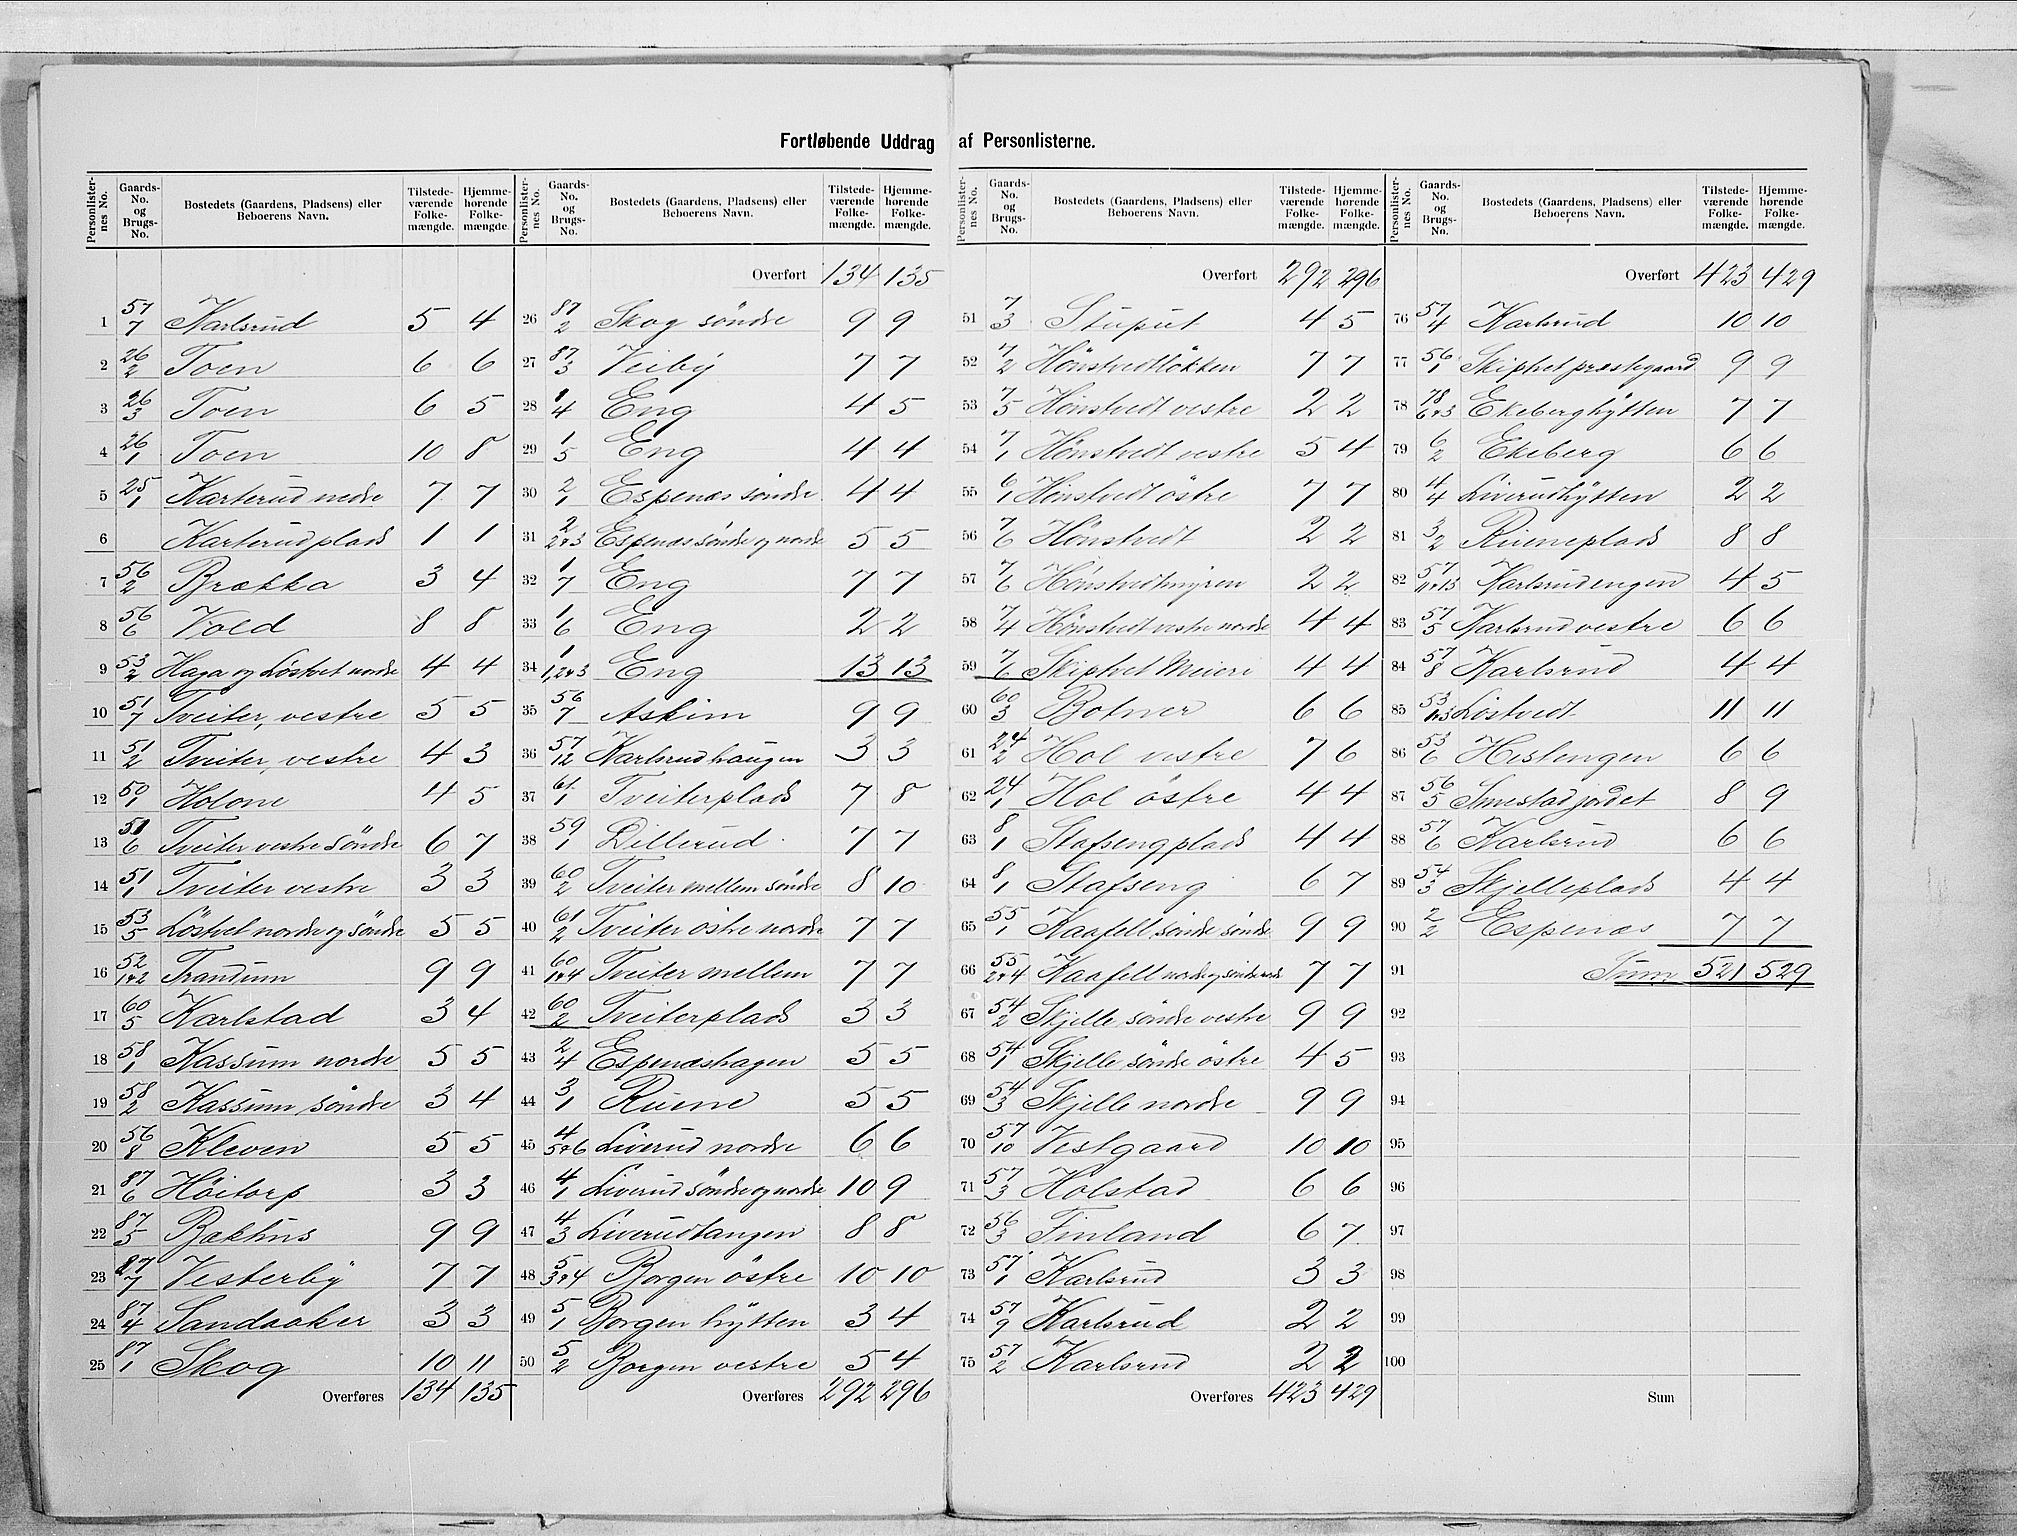 Fortløbende Uddrag af Personlisterne.
Personlister-nes No. Gaards-No. og Brugs-No. Bostedets (Gaardens, Pladsens) eller Beboerens Navn. Tilstede-værende Folke-mængde. Hjemme-hørende Folke-mængde.
1 57/7 Karlsrud 5 4
2 26/2 Toen 6 6
3 26/3 Toen 6 5
4 26/1 Toen 10 8
5 25/1 Karterud nedre 7 7
6 Karterudplads 1 1
7 56/2 Brækka 3 4
8 56/6 Vold 8 8
9 53/2 Haga og Löstvet nordre 4 4
10 51/7 Tveiter, vestre 5 5
11 51/2 Tveiter, vestre 4 3
12 50/1 Holone 4 5
13 51/6 Tveiter vestre söndre 6 7
14 51/1 Tveiter vestre 3 3
15 53/5 Löstvet nordre og söndre 5 5
16 52/1+2 Trandum 9 9
17 60/5 Karlstad 3 4
18 58/1 Kassum nordre 5 5
19 58/2 Kassum söndre 3 4
20 56/8 Kleven 5 5
21 87/6 Höitorp 3 3
22 87/5 Bækhus 9 9
23 87/7 Vesterby 7 7
24 87/4 Sandaaker 3 3
25 87/1 Skog 10 11
Overføres 134 135
Personlister-nes No. Gaards-No. og Brugs-No. Bostedets (Gaardens, Pladsens) eller Beboerens Navn. Tilstede-værende Folke-mængde. Hjemme-hørende Folke-mængde.
Overført 134 135
26 87/2 Skog söndre 9 9
27 87/3 Veiby 7 7
28 1/4 Eng 4 5
29 1/5 Eng 4 4
30 2/1 Espenæs söndre 4 4
31 2/2+3 Espenæs söndre og nordre 5 5
32 1/7 Eng 7 7
33 1/6 Eng 2 2
34 1/1,2+3 Eng 13 13
35 56/7 Askim 9 9
36 57/12 Karlsrudhaugen 3 3
37 61/1 Tveiterplads 7 8
38 59/1 Dillerud 7 7
39 60/2 Tveiter mellem söndre 8 10
40 61/2 Tveiter östre nordre 7 7
41 60/1+4 Tveiter mellem 7 7
42 60/2 Tveiterplads 3 3
43 2/4 Espenæshagen 5 5
44 3/1 Ruene 5 5
45 4/5+6 Liverud nordre 6 6
46 4/1 Liverud söndre og nordre 10 9
47 4/3 Liverudtangen 8 8
48 5/3+4 Borgen östre 10 10
49 5/1 Borgen hytten 3 4
50 5/2 Borgen vestre 5 4
Overføres 292 296
Personlister-nes No. Gaards-No. og Brugs-No. Bostedets (Gaardens, Pladsens) eller Beboerens Navn. Tilstede-værende Folke-mængde. Hjemme-hørende Folke-mængde.
Overført 292 296
51 7/3 Stuput 4 5
52 7/2 Hönstvedtlökken 7 7
53 7/5 Hönstvedt vestre 2 2
54 7/1 Hönstvedt vestre 5 4
55 6/1 Hönstvedt östre 7 7
56 7/6 Hönstvedt 2 2
57 7/6 Hönstvedtmyren 2 2
58 7/4 Hönstvedt vestre nordre 4 4
59 7/6 Skiptvet Meieri 4 4
60 60/3 Botner 6 6
61 24/2 Hol vestre 7 6
62 24/1 Hol östre 4 4
63 8/1 Stafsengplads 4 4
64 8/1 Stafseng 6 7
65 55/1 Kaafell söndre söndre 9 9
66 55/2+4 Kaafell nordre og söndre nordre 7 7
67 54/2 Skjelle, söndre vestre 9 9
68 54/1 Skjelle söndre östre 4 5
69 54/3 Skjelle nordre 9 9
70 57/10 Vestgaard 10 10
71 57/3 Holstad 6 6
72 56/3 Finland 6 7
73 57/1 Karlsrud 3 3
74 57/9 Karlsrud 2 2
75 57/2 Karlsrud 2 2
Overføres 423 429
Personlister-nes No. Gaards-No. og Brugs-No. Bostedets (Gaardens, Pladsens) eller Beboerens Navn. Tilstede-værende Folke-mængde. Hjemme-hørende Folke-mængde.
Overført 423 429
76 57/4 Karlsrud 10 10
77 56/1 Skiptvet præstegaard 9 9
78 78/6+3 Ekeberghytten 7 7
79 6/2 Ekeberg 6 6
80 4/4 Liverudhytten 2 2
81 3/2 Rueneplads 8 8
82 57 Karlsrudengen 4 5
83 57/5 Karlsrud vestre 6 6
84 57/8 Karlsrud 4 4
85 53 Löstvedt 11 11
86 53/6 Hestengen 6 6
87 56/5 Smestadjordet 8 9
88 57/6 Karlsrud 6 6
89 54/3 Skjelleplads 4 4
90 2/2 Espenæs 7 7
91 Sum 521 529
92
93
94
95
96
97
98
99
100
Sum